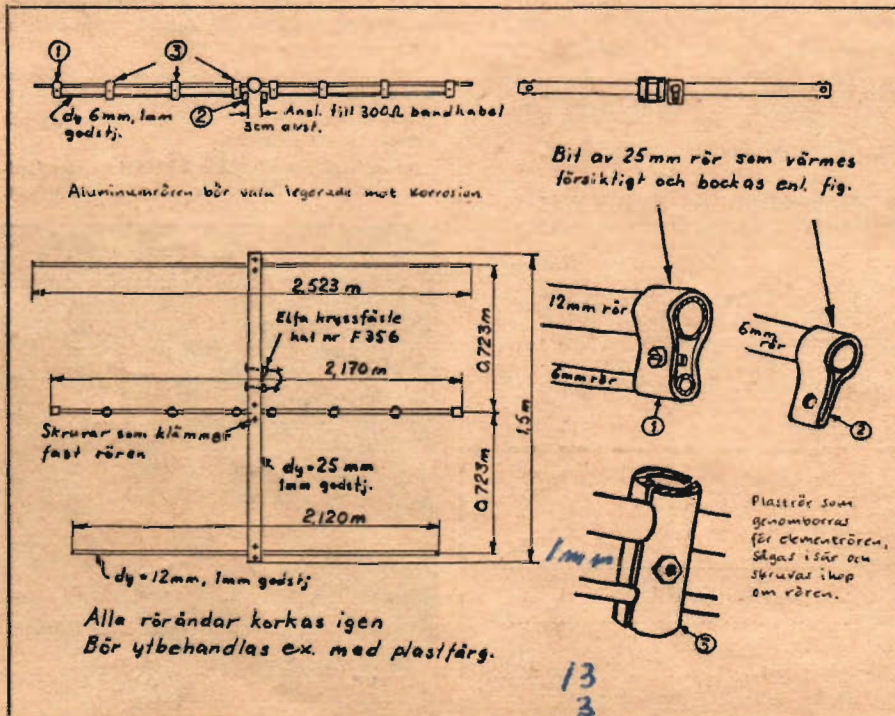 ① ③
dy 6mm, 1mm
godstj.
②
Ansl. till 300Ω bandkabel
3cm avst.
Aluminiumrören bör vara legerade mot korrosion
Bit av 25mm rör som värmes
försiktigt och bockas enl. fig.
2,523 m
Elfa kryssfäste
kat nr F 356
2,170 m
Skruvar som klämmer
fast rören
dy = 25 mm
1mm godstj.
2,120 m
dy = 12mm, 1mm godstj
0,723m
0,723m
1,5m
Alla rörändar korkas igen
Bör ytbehandlas ex. med plastfärg.
12mm rör
6mm rör
①
6mm
rör
②
Plaströr som
genomborras
för elementrören.
Sågas isär och
skruvas ihop
om rören.
③
1mm
13
3